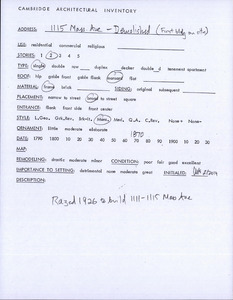 CAMBRIDGE ARCHITECTURAL INVENTORY
ADDRESS: 1115 Mass Ave - Demolished (First bldg on site)
USE: residential commercial religious
STORIES: 1 2 3 4 5
TYPE: single double row duplex decker double d. tenement apartment
ROOF: hip gable front gable flank mansard flat
MATERIAL: frame brick SIDING: original subsequent
PLACEMENT: narrow to street broad to street square
ENTRANCE: flank front side front center
STYLE: L.Geo. Grk.Rev. Ital. Mans. Med. Q.A. C.Rev. None+ None-
ORNAMENT: little moderate elaborate
1870
DATE: 1790 1800 10 20 30 40 50 60 70 80 90 1900 10 20 30
MAP:
REMODELING: drastic moderate minor CONDITION: poor fair good excellent
IMPORTANCE TO SETTING: detrimental none moderate great INITIALED:
DESCRIPTION:
Razed 1926 to build 1111-1115 Mass Ave